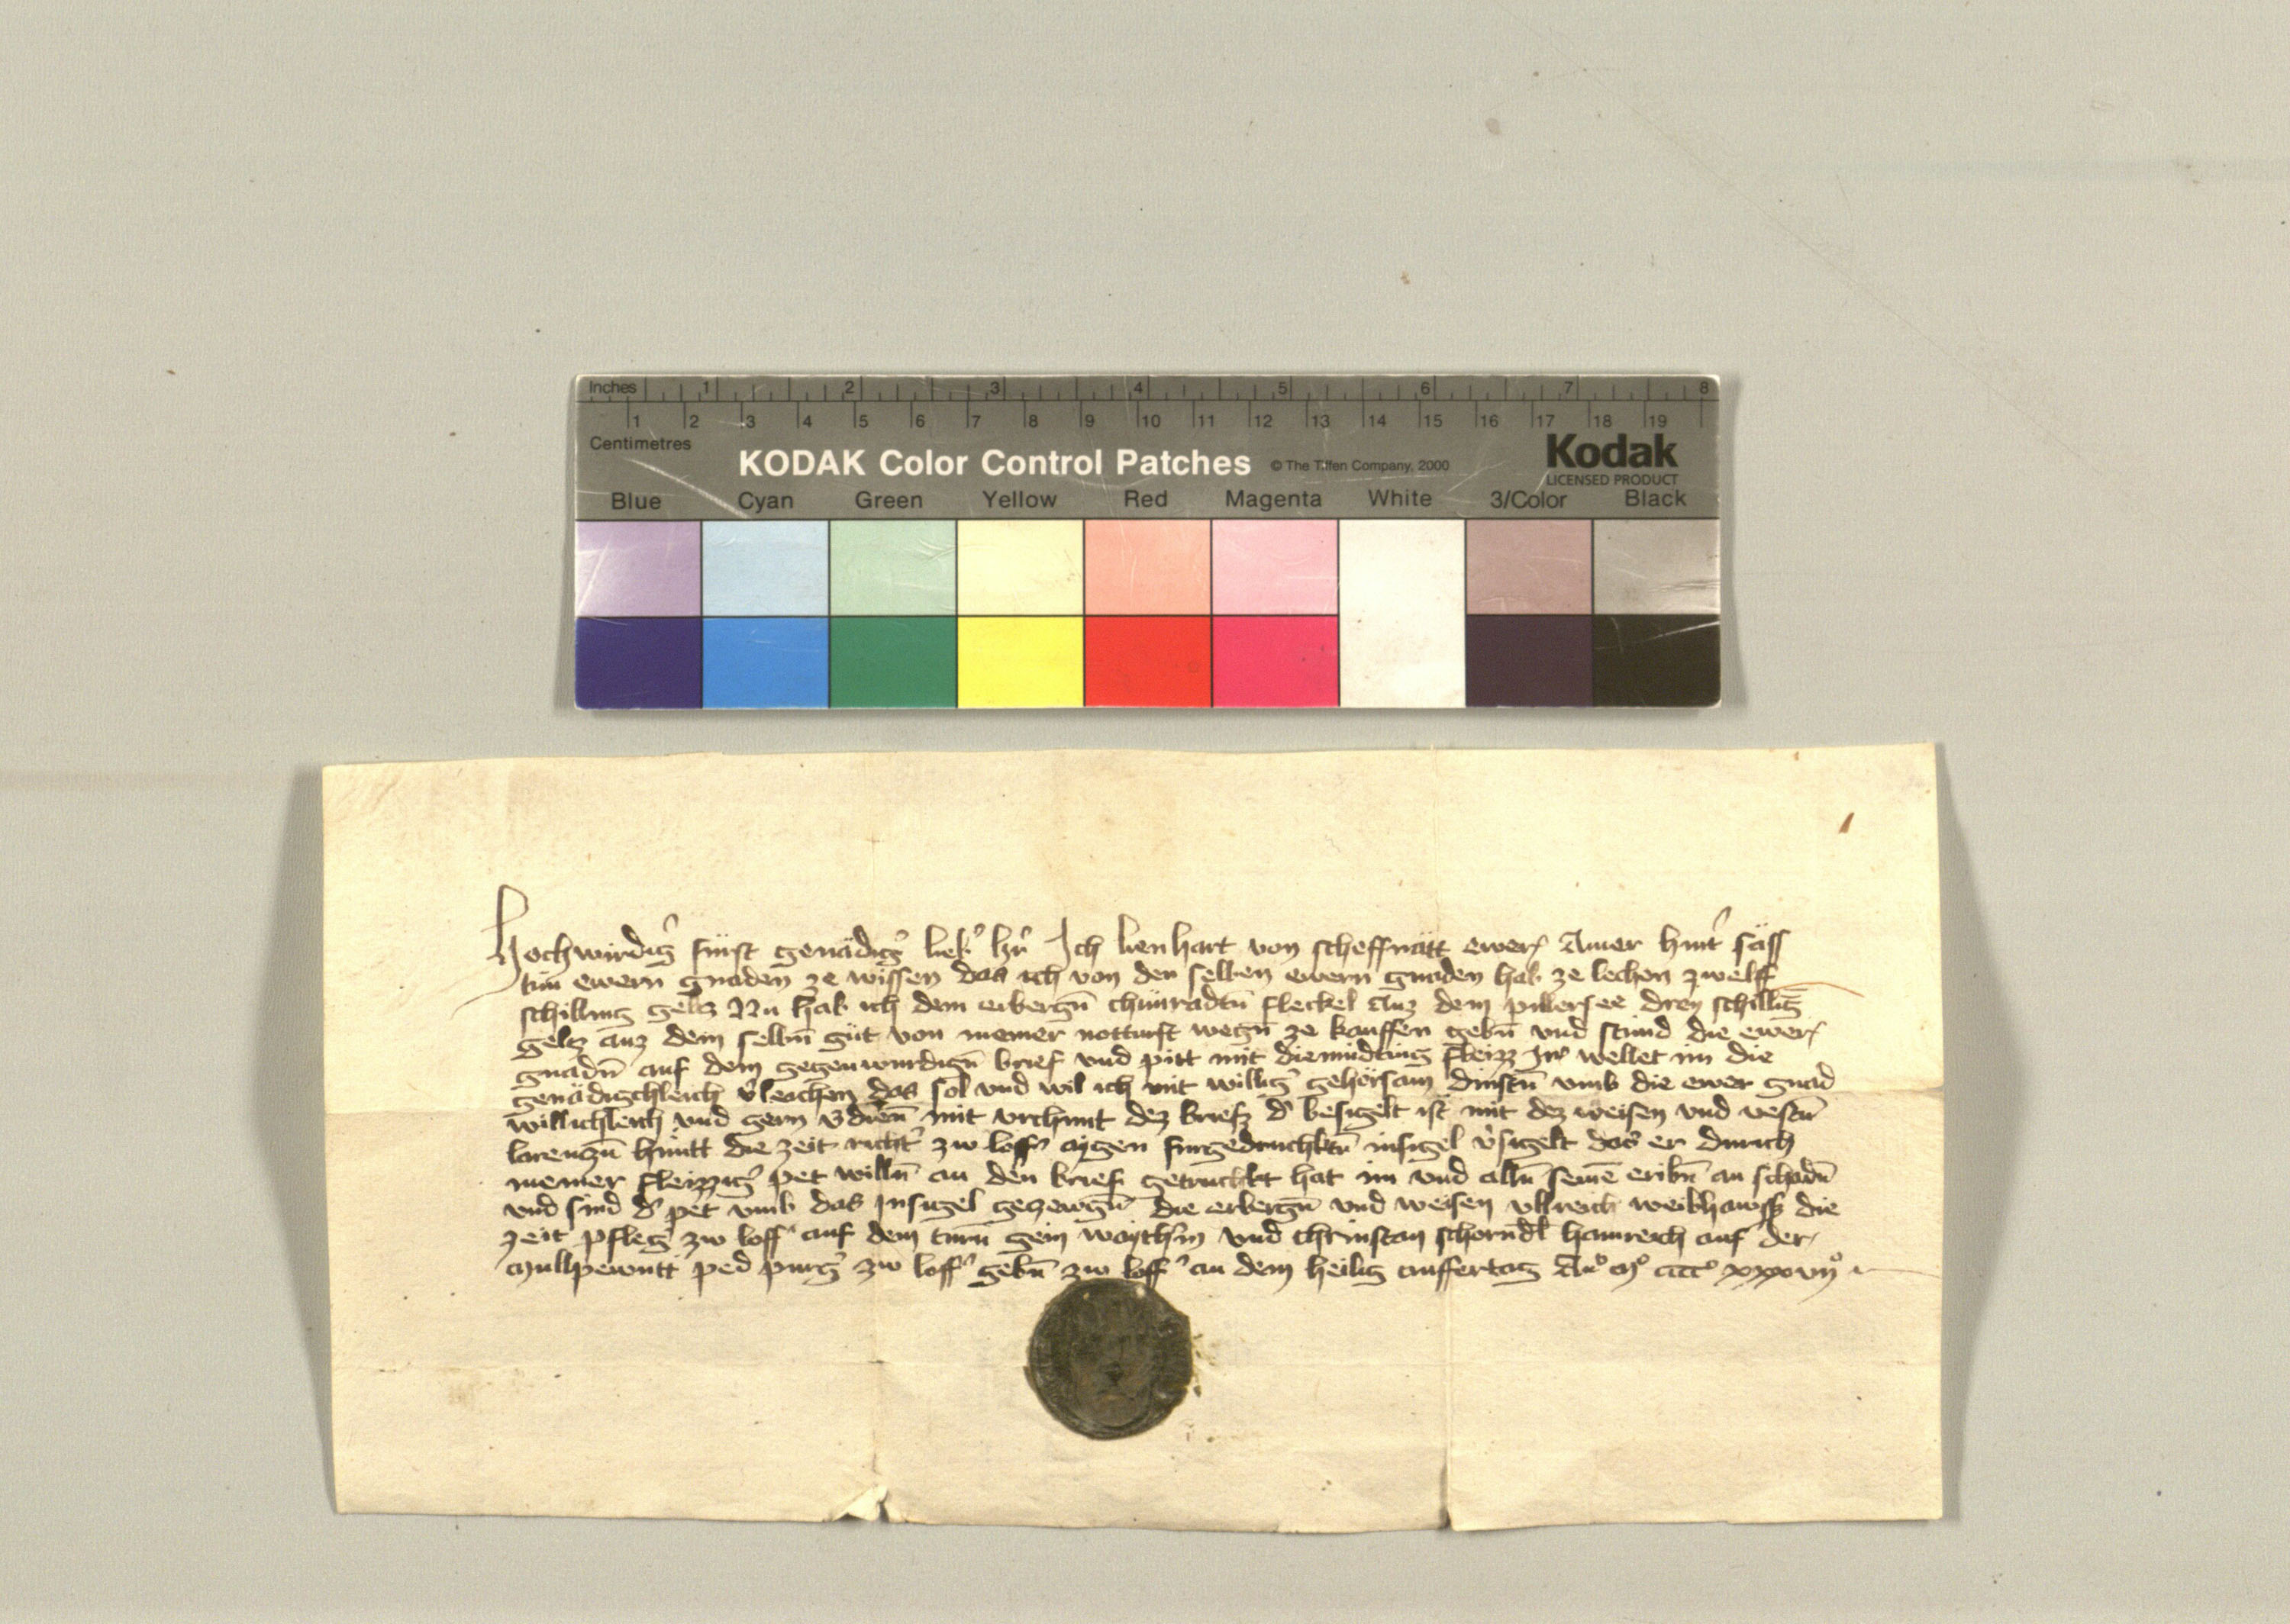 Inches 1 2 3 4 5 6 7 8
1 2 3 4 5 6 7 8 9 10 11 12 13 14 15 16 17 18 19
Centimetres
KODAK Color Control Patches © The Tiffen Company, 2000 Kodak
LICENSED PRODUCT
Blue Cyan Green Yellow Red Magenta White 3/Color Black
Hochwirdig' fürst genädig' lieb' h'r Ich lienhart von scheffnätt ewer Armer hint' säss
tün ewern gnaden ze wissen das ich von den selben ewern gnaden hab ze lechen zwelff
schilling geltz Nu hab ich dem erbergn̄ chünradtn̄ fleckel Auz dem pillersee drey schilliḡ
geltz auz dem selbn̄ güt von meiner notturft wegn̄ ze kauffen gebn̄ vnd send die ewer
gnadn̄ auf dem gegenwurdign̄ brief vnd pitt mit diemüdting fleizz Ir wellet im die
genädigchleich v'leichen das sol vnd wil ich mit willig' gehörsam dinstn̄ vmb die ewer gnad
willichleich vnd gern v'dien̄ mit vrchunt dez briefz d' besigelt ist mit dez weisen vnd vestn̄
larenczn̄ hüntt die zeit richt' zw loff' aygen furgedruchktn̄ insigel v'sigelt das er durich
meiner fleizzig' pet willn̄ an den brief getruchkt hat im vnd alln̄ seinē eribn̄ an schadn̄
vnd sind d' pet vmb das Insigel gezewgn̄ die erbergn̄ vnd weisen vllreich weikhawss die
zeit pfleg' zw loff' auf dem turn̄ gein vnd christan schorndl hainreich auf der
Mullpewntt ped purg' zw loff' gebn̄ zw loff' an dem heilig auffertag Ano mo cccco xxxviio